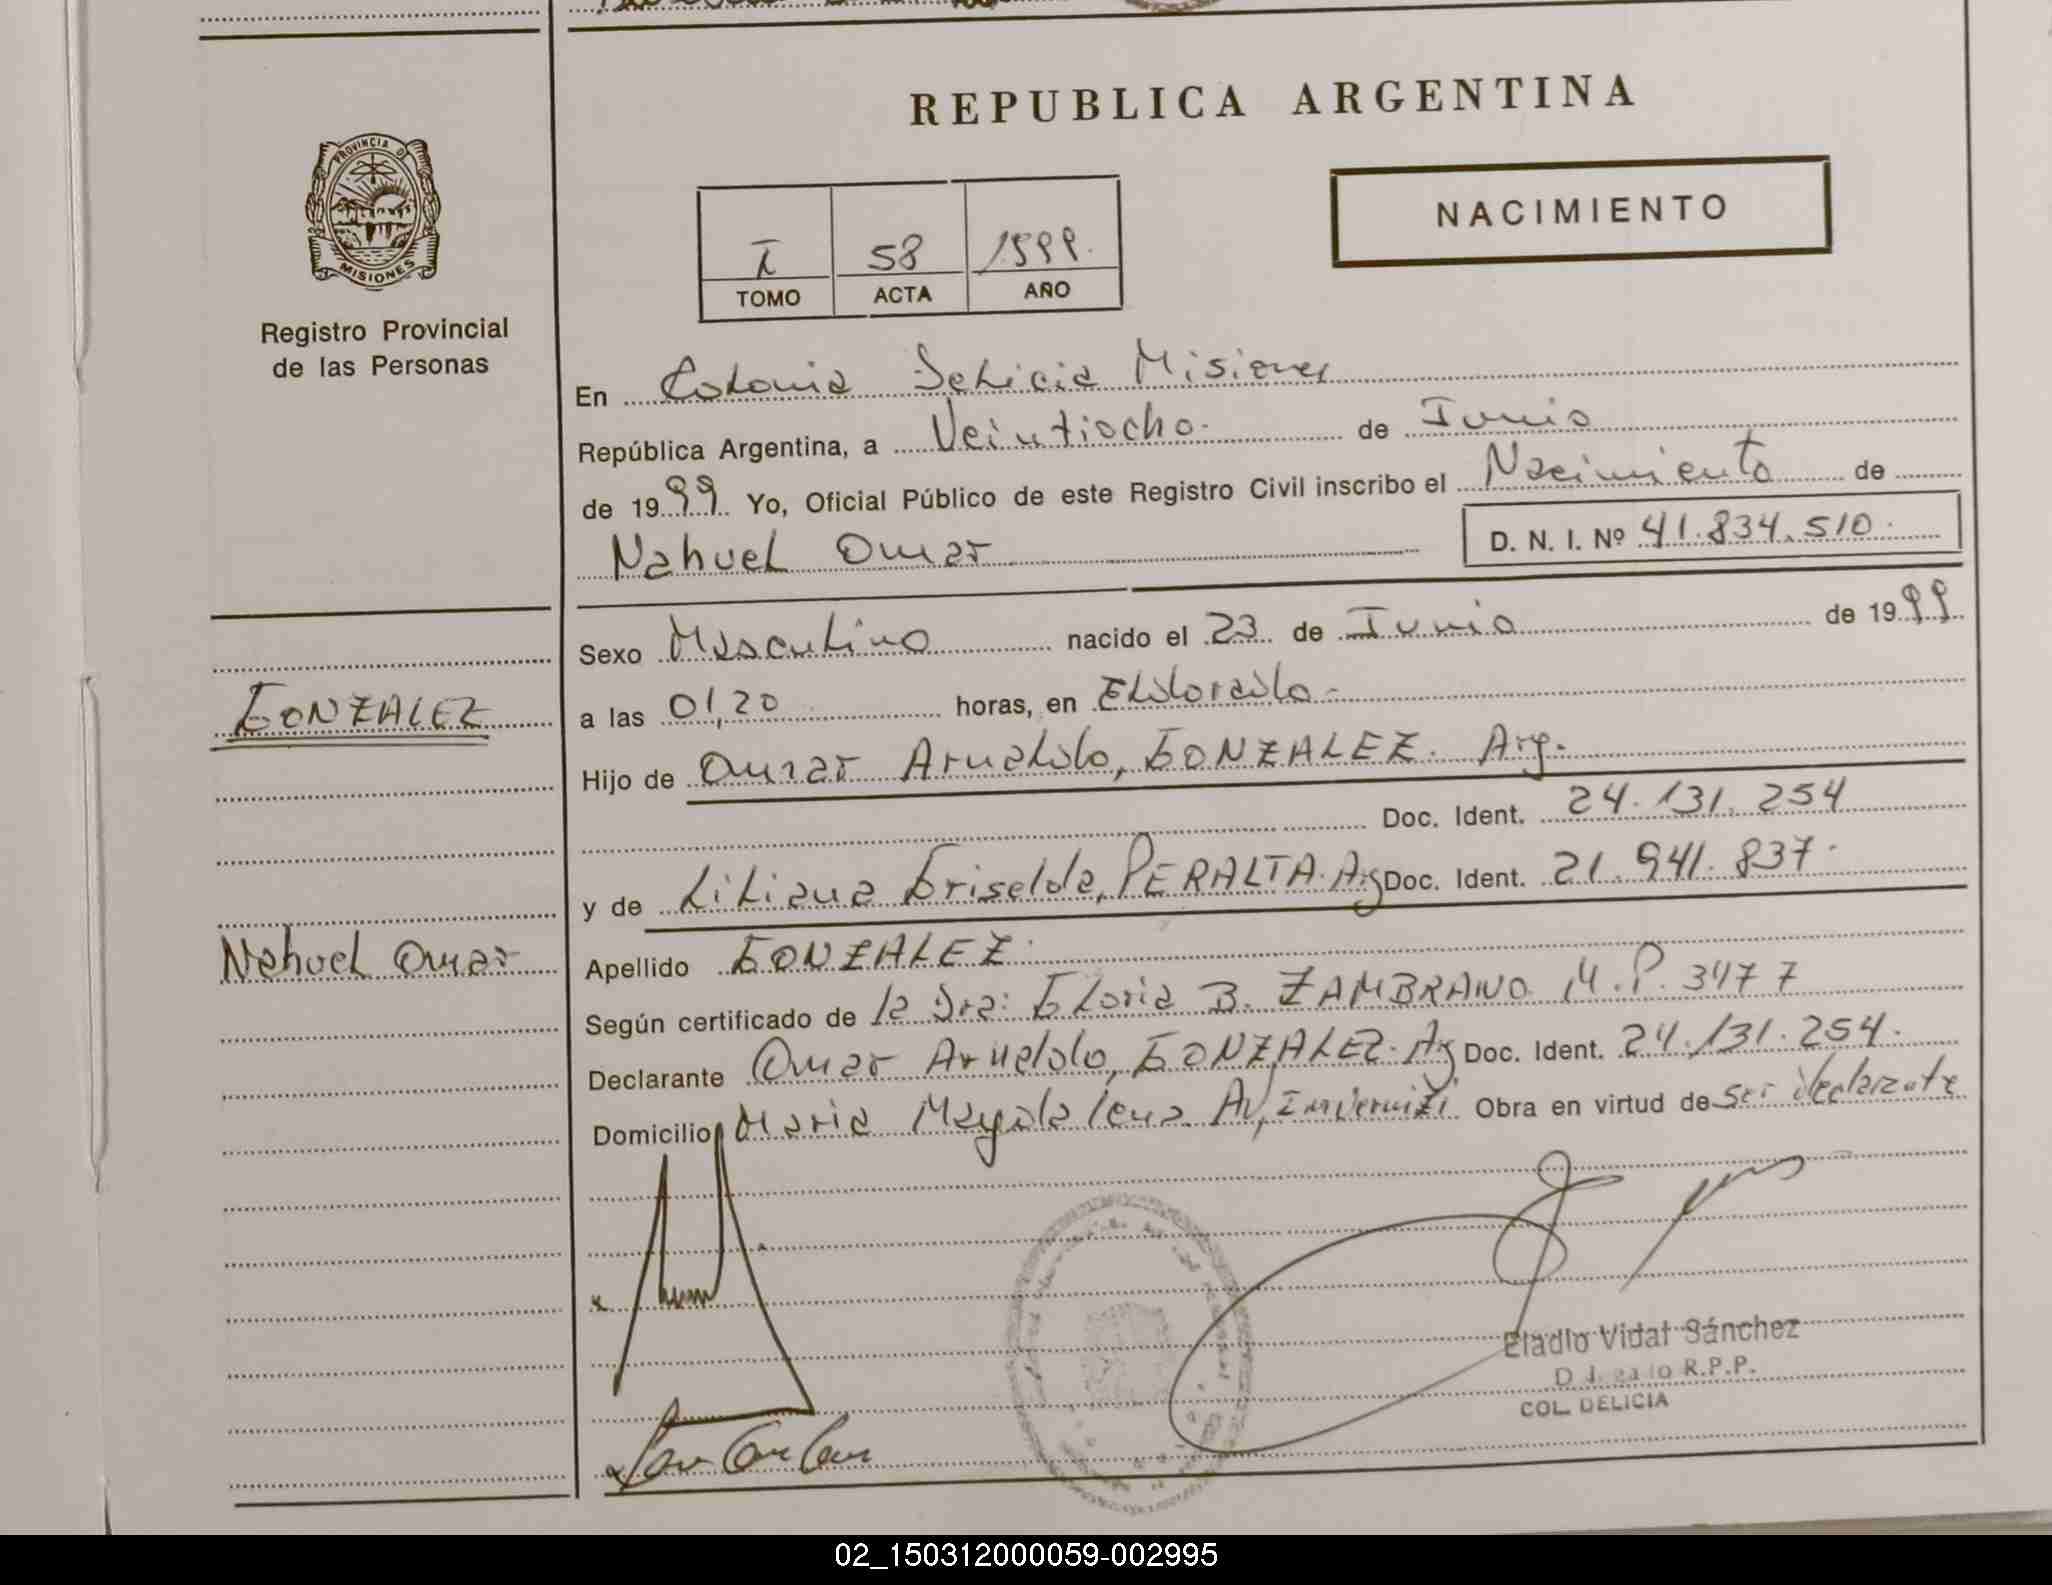 REPUBLICA ARGENTINA
PROVINCIA DE
MISIONES
Registro Provincial
de las Personas
NACIMIENTO
I 58 1999.
TOMO ACTA AÑO
En Colonia Delicia Misiones
República Argentina, a Veintiocho. de Junio
de 1999 Yo, Oficial Público de este Registro Civil inscribo el Nacimiento de
Nahuel Omar D. N. I. Nº 41.834.510.
Sexo Masculino nacido el 23 de Junio de 1999
GONZALEZ
a las 01,20 horas, en Eldorado-
Hijo de Omar Arnaldo, GONZALEZ. Arg.
Doc. Ident. 24.131.254
y de Liliana Griselda, PERALTA. Arg Doc. Ident. 21.941.837.
Nahuel Omar
Apellido GONZALEZ.
Según certificado de la Dra: Gloria B. ZAMBRANO M.P. 3477
Declarante Omar Arnaldo, GONZALEZ. Arg Doc. Ident. 24.131.254.
Domicilio Maria Magdalena Av, Invernizi. Obra en virtud de ser declarante
Eladio Vidal Sánchez
Delegado R.P.P.
COL. DELICIA
02_150312000059-002995